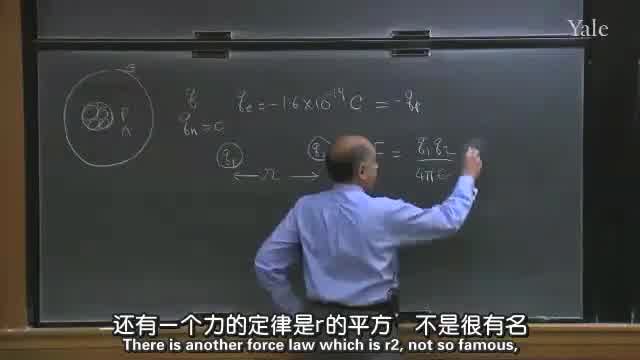 Yale
q qₑ = -1.6×10⁻¹⁹ C = -qₚ
P
n
qₙ = 0
q₁ q₂ F = q₁q₂
r 4πε
还有一个力的定律是r的平方 不是很有名
There is another force law which is r2, not so famous,